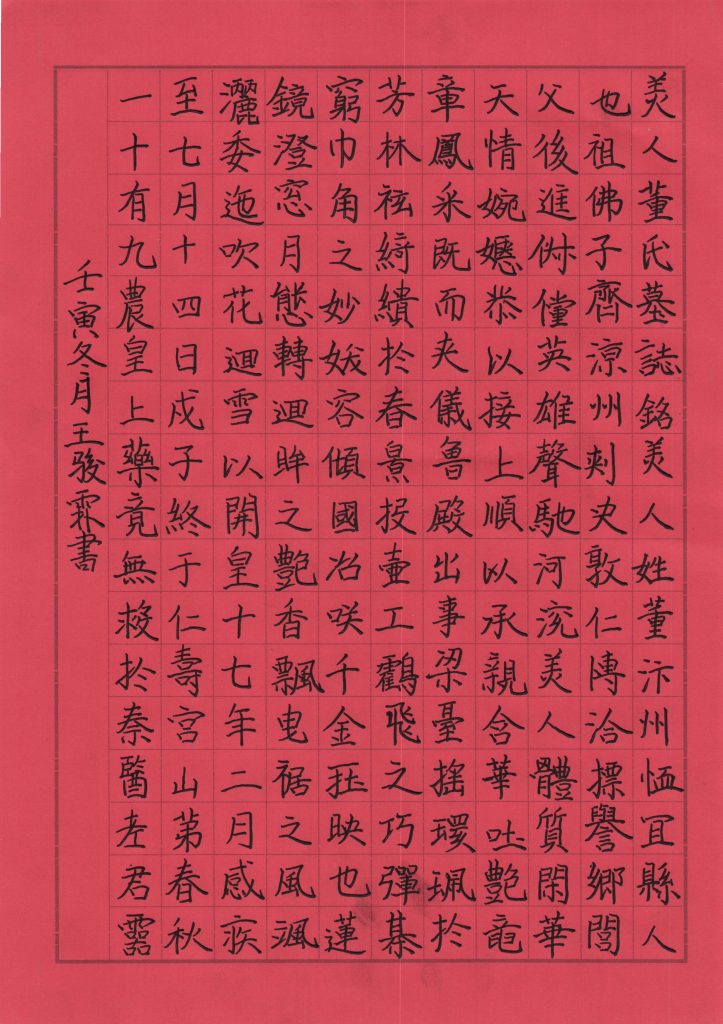 美人董氏墓誌銘美人姓董汴州恤冝縣人
也祖佛子齊涼州刺史敦仁博洽摽譽鄉閭
父後進俶儻英雄聲馳河兖美人體質閑華
天情婉嫕恭以接上順以承親含華吐艷竜
章鳳采既而夾儀魯殿出事梁臺搖環珮於
芳林袨綺繢於春景投壷工鸖飛之巧彈棊
窮巾角之妙妭容傾國冶咲千金玨映也蓮
鏡澄窓月態轉迴眸之艷香飄曳裾之風颯
灑委迤吹花迴雪以開皇十七年二月感疾
至七月十四日戍子終于仁壽宮山第春秋
一十有九農皇上藥竟無救於秦醫老君靈
壬寅冬月王骏霖書